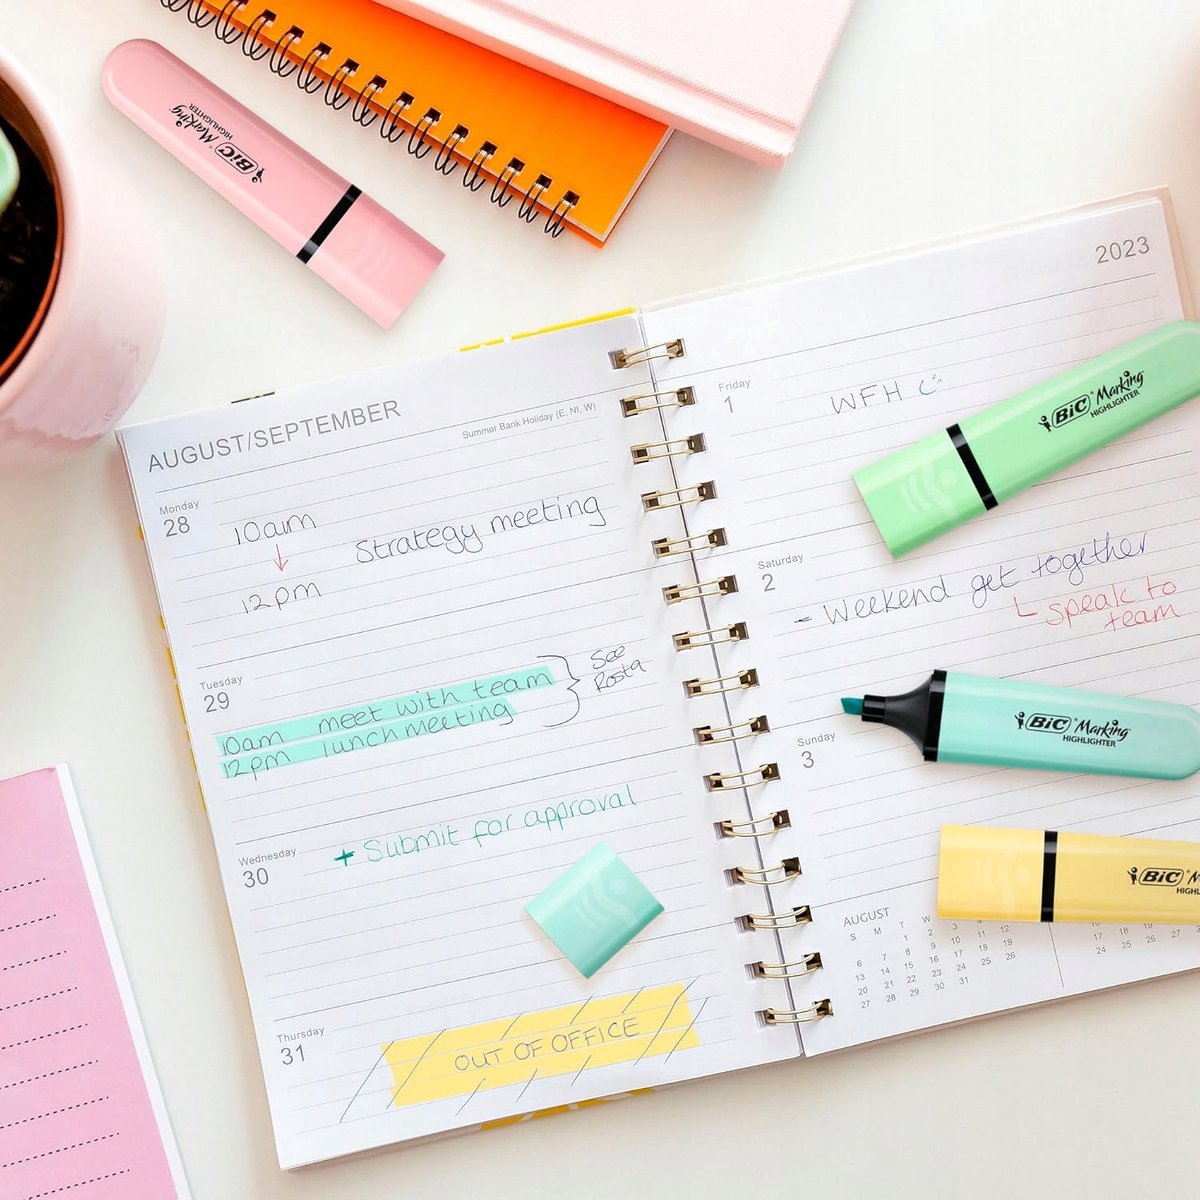 BiC® Marking
HIGHLIGHTER
AUGUST/SEPTEMBER
Summer Bank Holiday (E, NI, W)
Monday
28
10am
↓
Strategy meeting
12pm
Tuesday
29
10am meet with team
12pm lunch meeting
See
Rosta
Wednesday
30
+ Submit for approval
Thursday
31
OUT OF OFFICE
2023
Friday
1
WFH
BiC® Marking
HIGHLIGHTER
Saturday
2
- Weekend get together
speak to
team
BiC® Marking
HIGHLIGHTER
Sunday
3
BiC M
HIGHL
AUGUST
S M T W
1 2 3 4 5
6 7 8 9 10 11 12
13 14 15 16 17 18 19
20 21 22 23 24 25 26
27 28 29 30 31
17 18 19 20
24 25 26 27